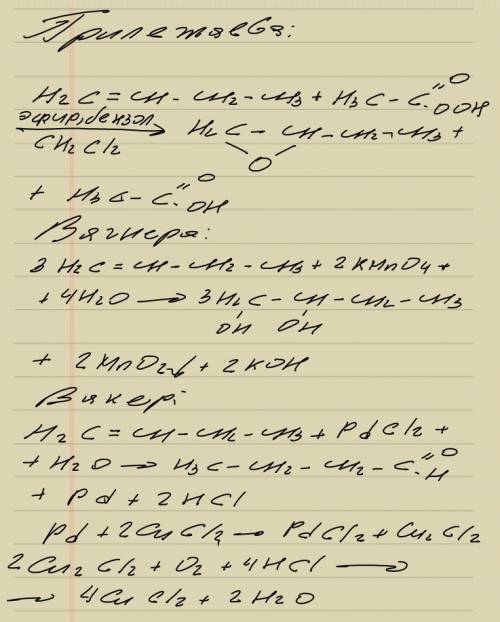 Прилежаева:
H2C=CH-CH2-CH3+H3C-C=O OOH
эфир, бензол, CH2Cl2 → H2C-CH-CH2-CH3+
O
+ H3C-C=O OH
Вагнера:
3H2C=CH-CH2-CH3+2KMnO4+
+4H2O → 3H2C-CH-CH2-CH3
OH OH
+ 2MnO2↓+2KOH
Вакер:
H2C=CH-CH2-CH3+PdCl2+
+H2O → H3C-CH2-CH2-C=O H
+ Pd + 2HCl
Pd+2CuCl2 → PdCl2+Cu2Cl2
2Cu2Cl2+O2+4HCl →
→ 4CuCl2+2H2O